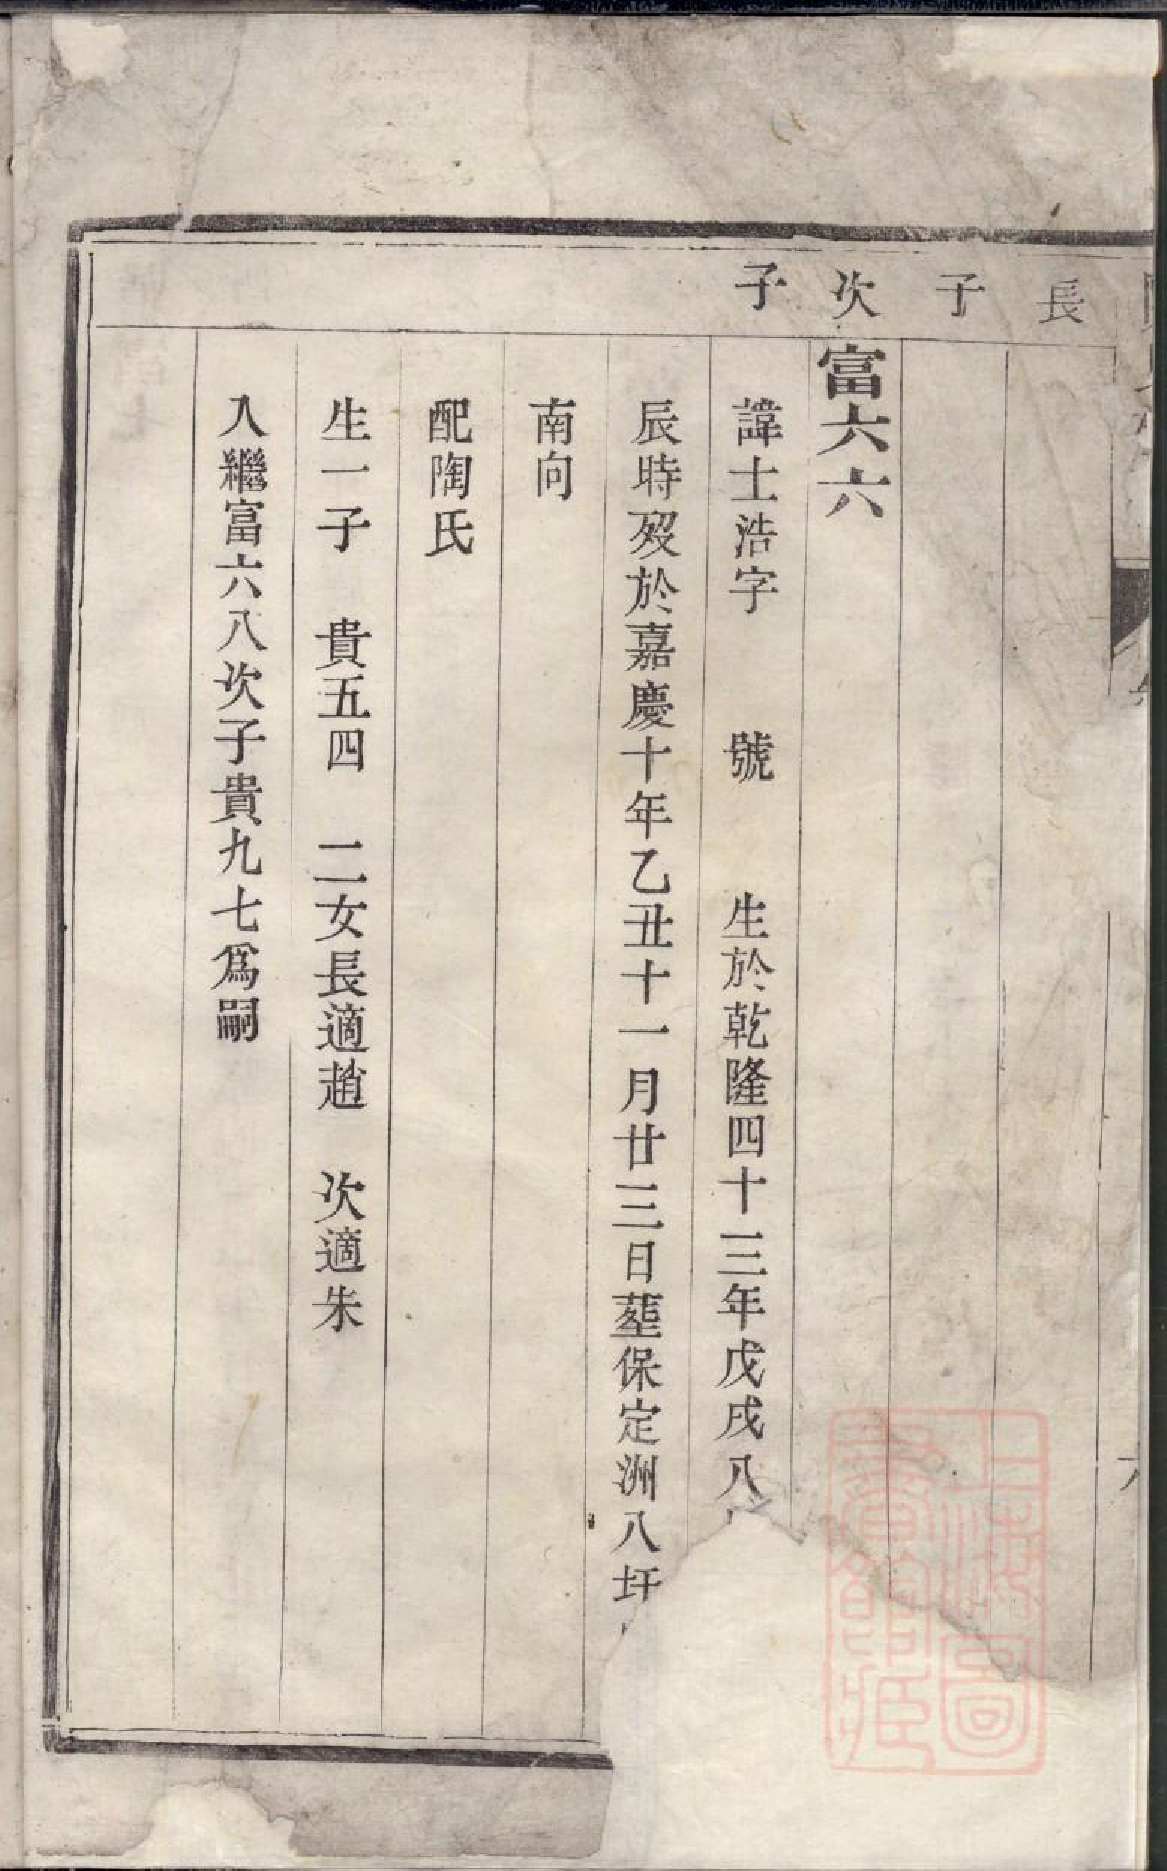 長
子
次
富六六
子
諱士浩字 號 生於乾隆四十三年戊戌八
辰時歿於嘉慶十年乙丑十一月廿三日塟保定洲八圩
南向
配陶氏
生一子 貴五四 二女長適趙 次適朱
入繼富六八次子貴九七爲嗣
上海圖
書館藏